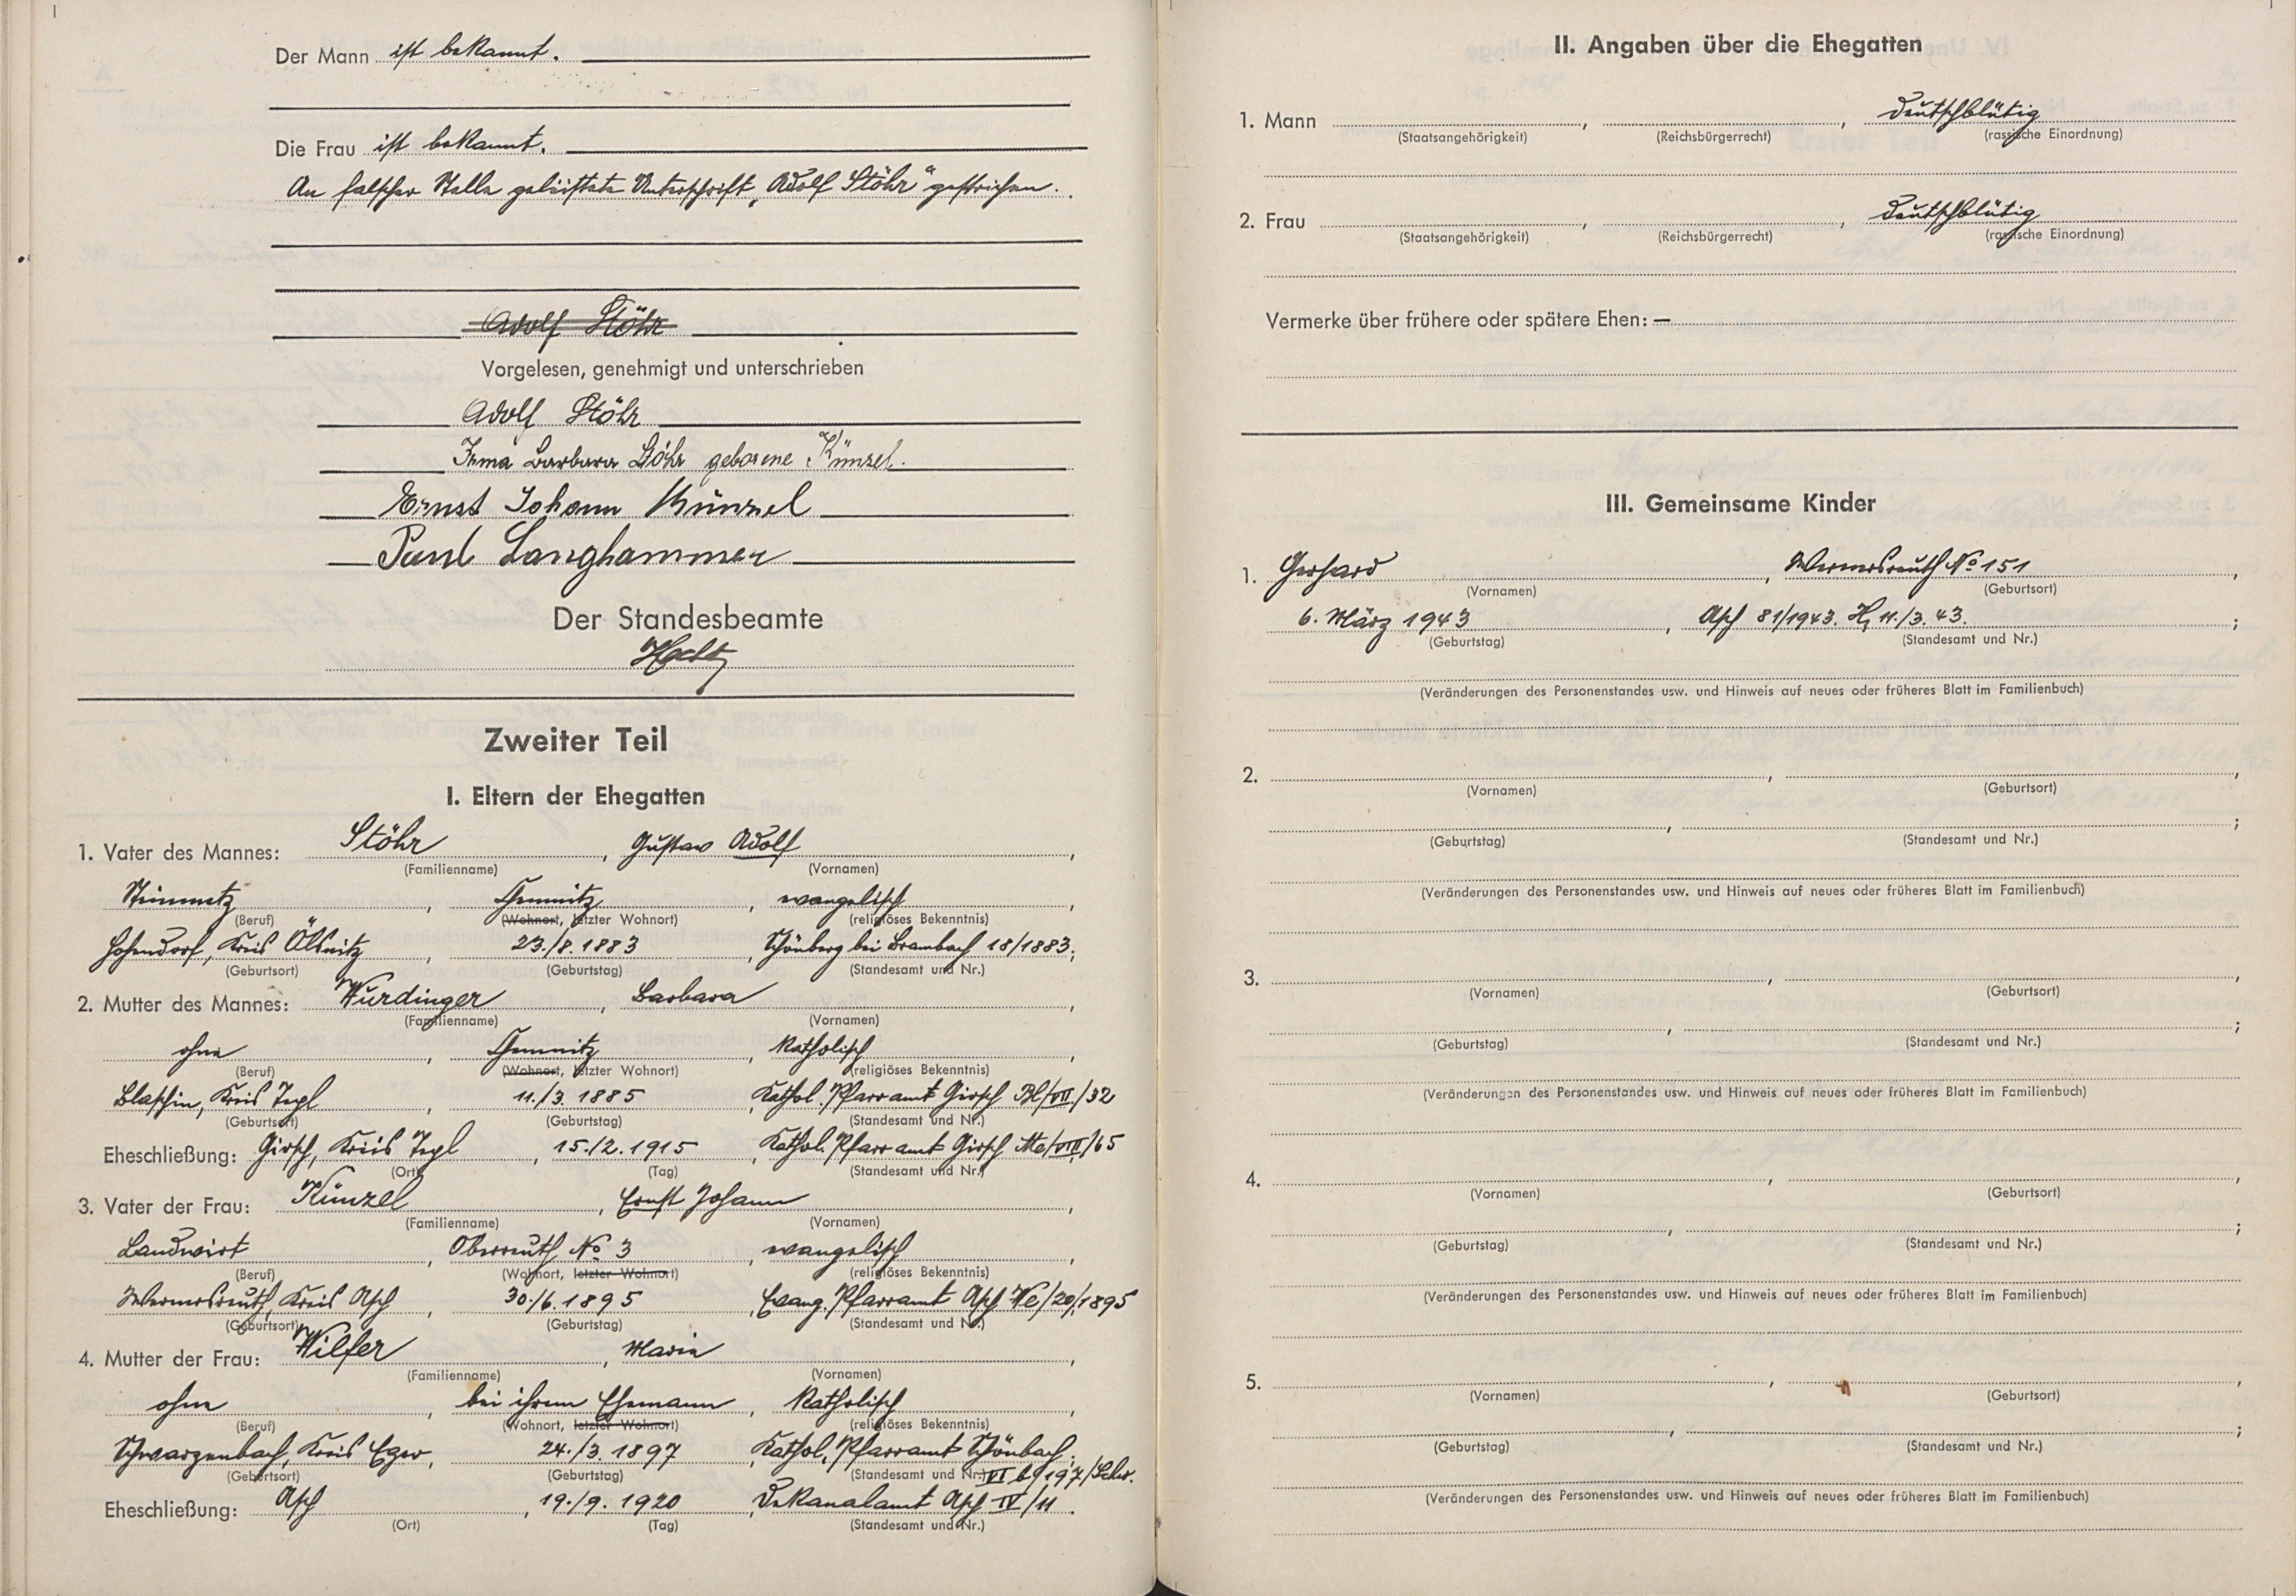 Der Mann ist bekannt.
Die Frau ist bekannt.
An falscher Stelle geleistete Unterschrift „Adolf Stöhr“ gestrichen.
Adolf Stöhr
Vorgelesen, genehmigt und unterschrieben
Adolf Stöhr
Irma Barbara Stöhr geborene Künzel.
Ernst Johann Künzel
Paul Langhammer
Der Standesbeamte
Zweiter Teil
I. Eltern der Ehegatten
1. Vater des Mannes: Stöhr, Gustav Adolf,
(Familienname) (Vornamen)
Steinmetz, Chemnitz, evangelisch,
(Beruf) (Wohnort, letzter Wohnort) (religiöses Bekenntnis)
Hohendorf, Kreis Ölsnitz, 23./8. 1883, Schönberg bei Brambach 18/1883;
(Geburtsort) (Geburtstag) (Standesamt und Nr.)
2. Mutter des Mannes: Würdinger, Barbara,
(Familienname) (Vornamen)
ohne, Chemnitz, katholisch,
(Beruf) (Wohnort, letzter Wohnort) (religiöses Bekenntnis)
Blaschin, Kreis Tepl, 11./3. 1885, Kathol. Pfarramt Girsch Bl/VII./32
(Geburtsort) (Geburtstag) (Standesamt und Nr.)
Eheschließung: Girsch, Kreis Tepl, 15./2. 1915, Kathol. Pfarramt Girsch Me/VIII/65
(Ort) (Tag) (Standesamt und Nr.)
3. Vater der Frau: Künzel, Ernst Johann,
(Familienname) (Vornamen)
Landwirt, Oberreuth No 3, evangelisch,
(Beruf) (Wohnort, letzter Wohnort) (religiöses Bekenntnis)
Wernersreuth, Kreis Asch, 30./6. 1895, Evang. Pfarramt Asch We/20/1895
(Geburtsort) (Geburtstag) (Standesamt und Nr.)
4. Mutter der Frau: Wilfer, Maria,
(Familienname) (Vornamen)
ohne, bei ihrem Ehemann, katholisch,
(Beruf) (Wohnort, letzter Wohnort) (religiöses Bekenntnis)
Schwarzenbach, Kreis Eger, 24./3. 1897, Kathol. Pfarramt Schönbach,
(Geburtsort) (Geburtstag) (Standesamt und Nr.) VI b/197/Schw.
Eheschließung: Asch, 19./9. 1920, Dekanalamt Asch IV/11.
(Ort) (Tag) (Standesamt und Nr.)
II. Angaben über die Ehegatten
1. Mann , , deutschblütig
(Staatsangehörigkeit) (Reichsbürgerrecht) (rassische Einordnung)
2. Frau , , deutschblütig
(Staatsangehörigkeit) (Reichsbürgerrecht) (rassische Einordnung)
Vermerke über frühere oder spätere Ehen: —
III. Gemeinsame Kinder
1. Gerhard, Wernersreuth No 151,
(Vornamen) (Geburtsort)
6. März 1943, Asch 81/1943. H, 11./3. 43.;
(Geburtstag) (Standesamt und Nr.)
(Veränderungen des Personenstandes usw. und Hinweis auf neues oder früheres Blatt im Familienbuch)
2. , ,
(Vornamen) (Geburtsort)
, ;
(Geburtstag) (Standesamt und Nr.)
(Veränderungen des Personenstandes usw. und Hinweis auf neues oder früheres Blatt im Familienbuch)
3. , ,
(Vornamen) (Geburtsort)
, ;
(Geburtstag) (Standesamt und Nr.)
(Veränderungen des Personenstandes usw. und Hinweis auf neues oder früheres Blatt im Familienbuch)
4. , ,
(Vornamen) (Geburtsort)
, ;
(Geburtstag) (Standesamt und Nr.)
(Veränderungen des Personenstandes usw. und Hinweis auf neues oder früheres Blatt im Familienbuch)
5. , ,
(Vornamen) (Geburtsort)
, ;
(Geburtstag) (Standesamt und Nr.)
(Veränderungen des Personenstandes usw. und Hinweis auf neues oder früheres Blatt im Familienbuch)